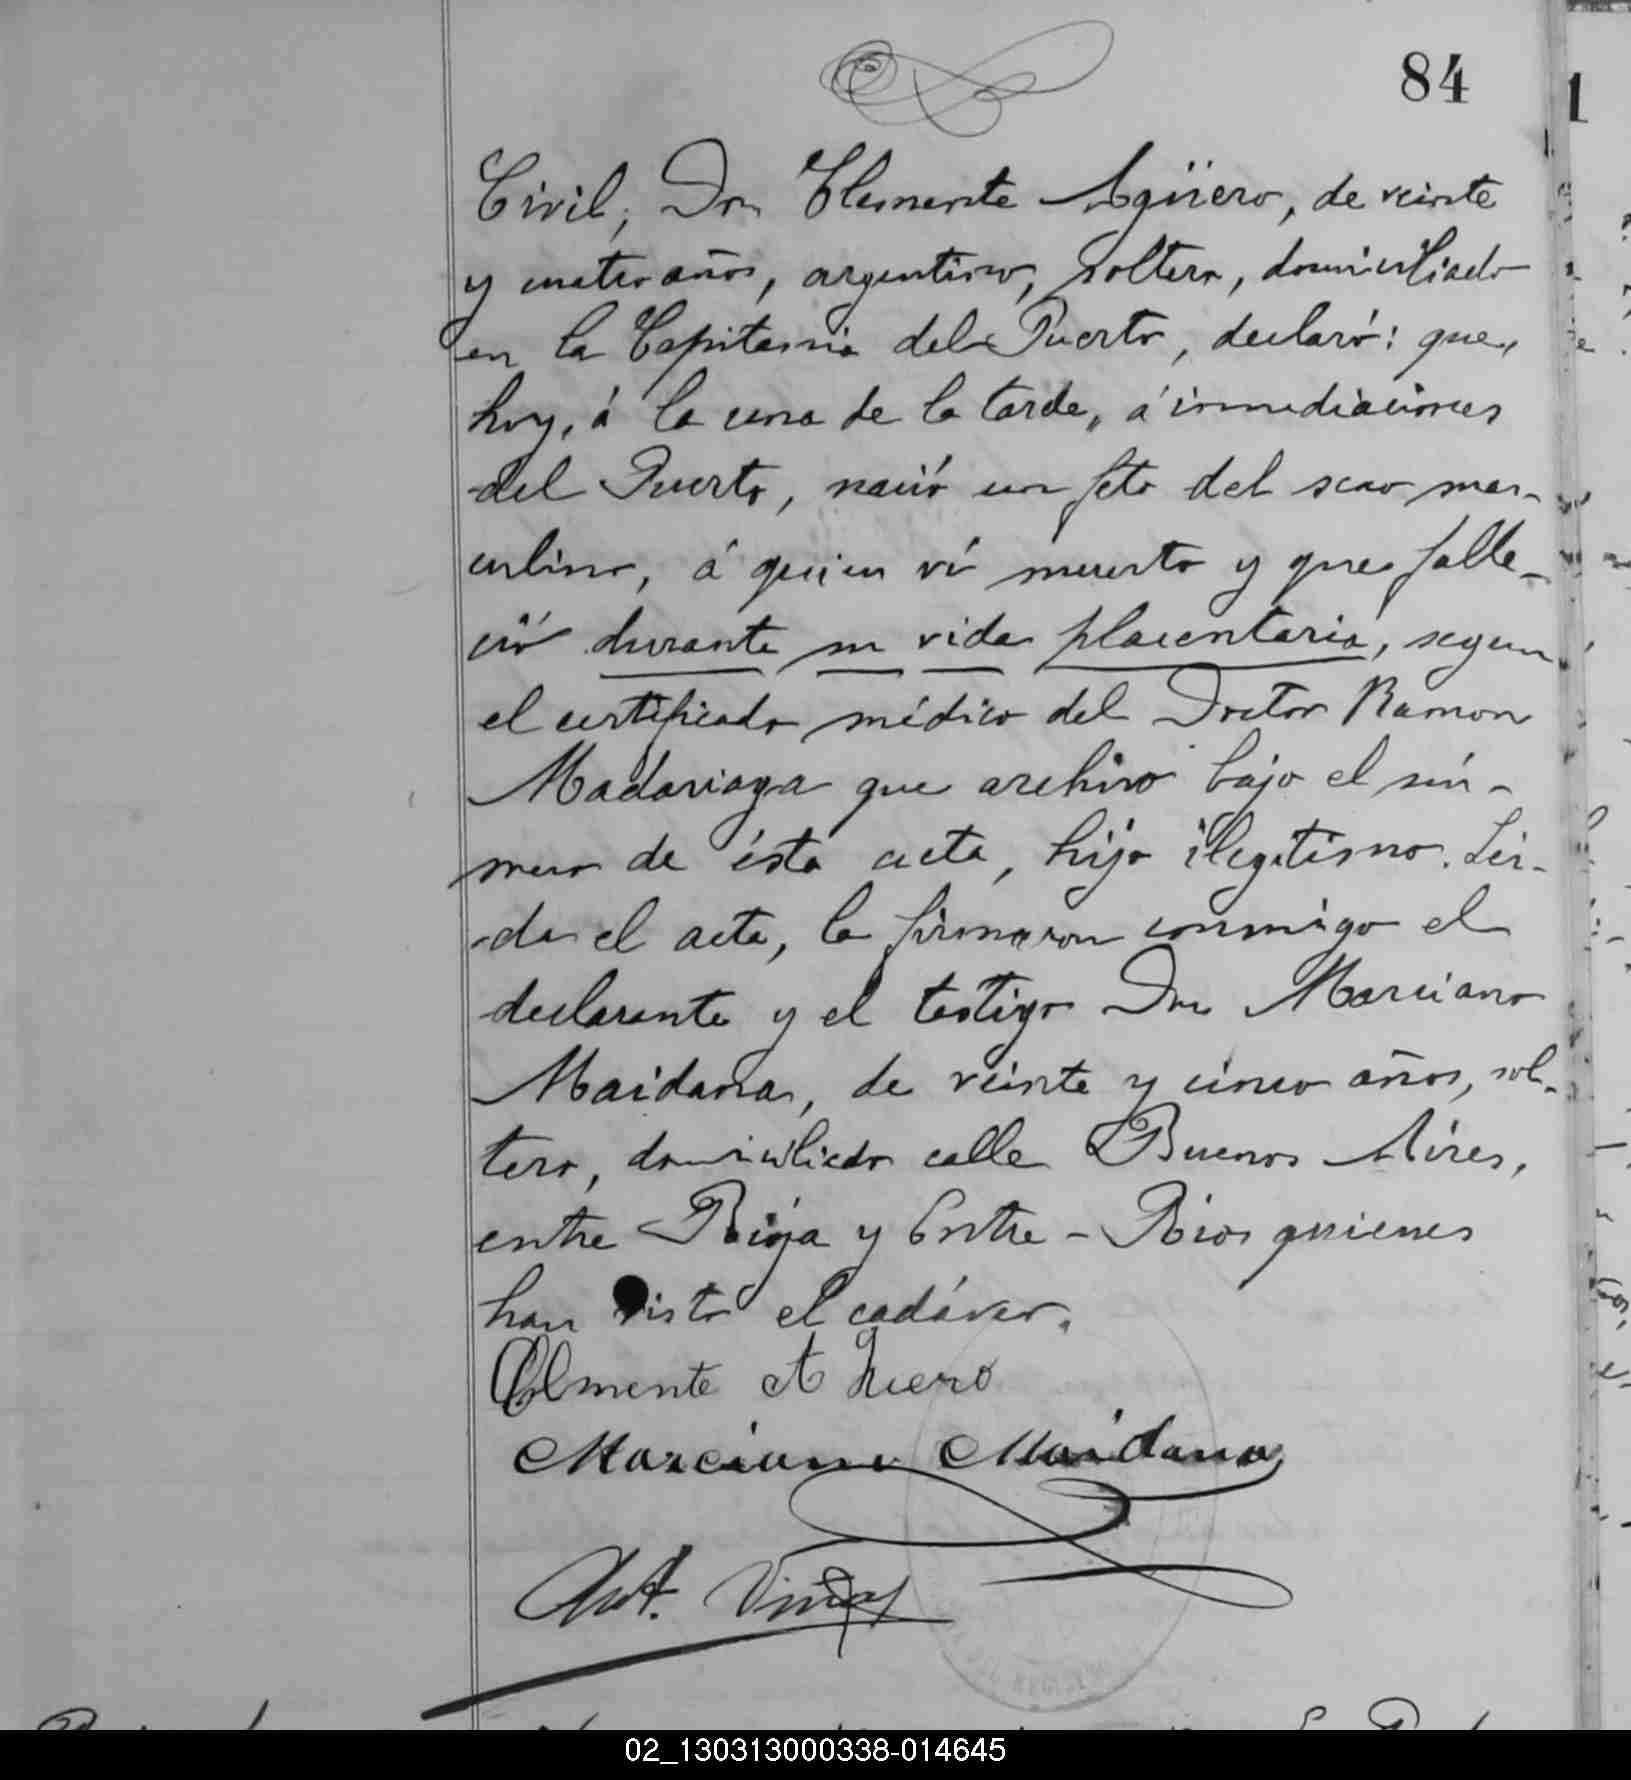 84
Civil, Dn Clemente Agüero, de veinte
y cuatro años, argentino, soltero, domiciliado
en la Capitania del Puerto, declaró: que,
hoy, á la una de la tarde, á inmediaciones
del Puerto, nació un feto del sexo mas-
culino, á quien ví muerto y que falle-
ció durante su vida placentaria, segun
el certificado médico del Doctor Ramon
Madariaga que archivo bajo el nú-
mero de ésta acta, hijo ilegítimo. Lei-
da el acta, la firmaron conmigo el
declarante y el testigo Dn Marciano
Maidana, de veinte y cinco años, sol-
tero, domiciliado calle Buenos Aires,
entre Rioja y Entre-Rios quienes
han visto el cadáver.
Clmente A huero
Marciano Maidana
Ant.
02_130313000338-014645